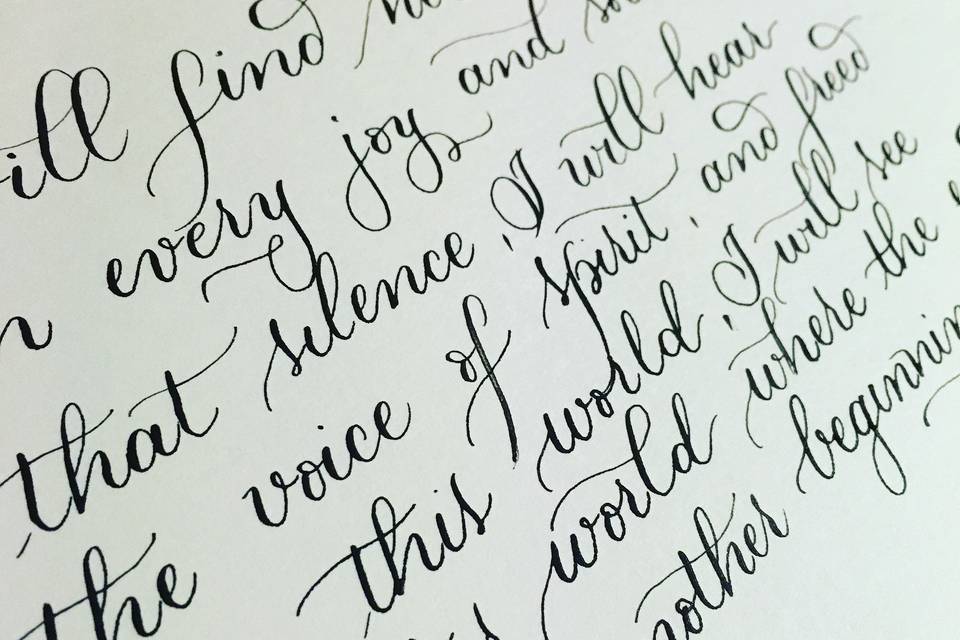 ill find
n every joy and
that silence, I will hear
the voice of spirit, and freed
this world, I will see
world where the
nother beginnin